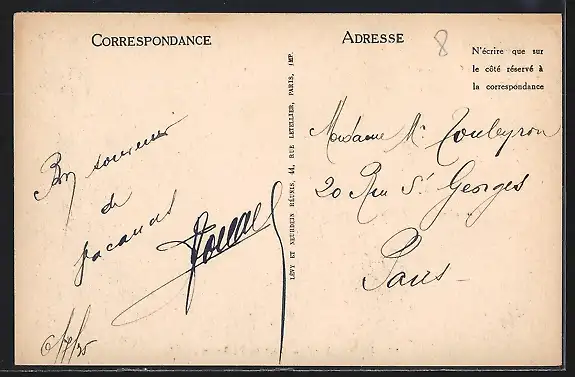 CORRESPONDANCE
ADRESSE
8
N'écrire que sur
le côté réservé à
la correspondance
Bon souvenir
de
6/7/35
LÉVY ET NEURDEIN RÉUNIS, 44, RUE LETELLIER, PARIS, IMP.
Madame
20 Rue St Georges
Paris